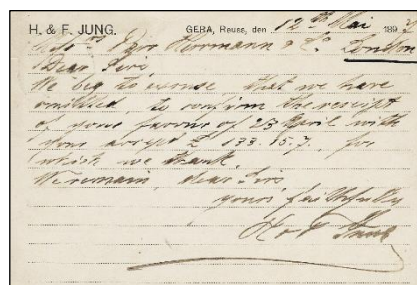 H. & F. JUNG. GERA, Reuss, den 12th Mai 1897
Herrmann & Co. London
Dear Sirs,
We beg to excuse that we have
omitted, to confirm the receipt
of your favour of 23 April with
your accept £ 133.15.7, for
which we thank.
We remain, dear Sirs,
yours faithfully
H & F Jung